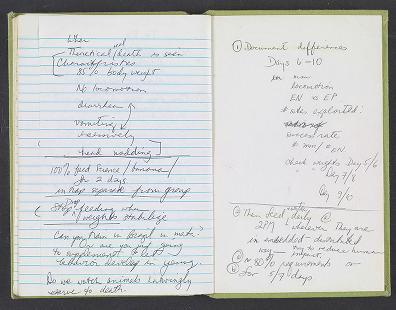 When
Theoretical wt/death is seen
Characteristics
85% body weight
No locomotion
diarrhea
vomiting
excessively
head nodding
100% feed Science / banana /
for 2 days
in trap separate from group
Stop feeding when
weights stabilize
Can you train in Brazil in meta?
Or are you just going
to supplement & let
behavior develop in young.
Do we watch animals knowingly
starve to death.
① Document differences
Days 6-10
in mm
locomotion
EN vs EP
# sites exploited:
success rate
# min / EN
check weights Day 5/6
Day 7/8
Day 9/10
② Then feed daily @
2PM wherever they are
in embedded - distributed
way try to reduce human
impact.
③ ~ 80% requirements
for 5/7 days